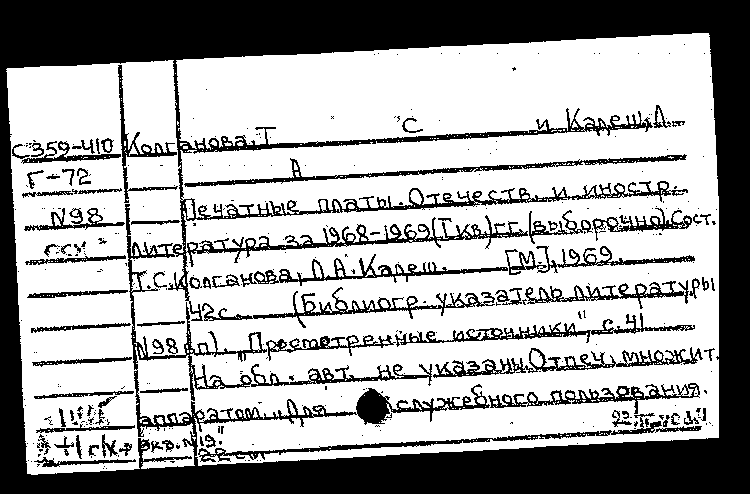 С359-410 Колганова, Т С и Кадеш, Л
Г-72 А
N98 Печатные платы. Отечеств. и иностр.
литература за 1968-1969 (I кв.) гг. (выборочно). Сост.
Т.С. Колганова, Л.А. Кадеш. [М.], 1969.
42с. (Библиогр. указатель литературы
N98 вп). "Просмотренные источники", с. 41
На обл. авт. не указаны. Отпеч. множит.
аппаратом. "Для служебного пользования.
экз. N19."
22 см